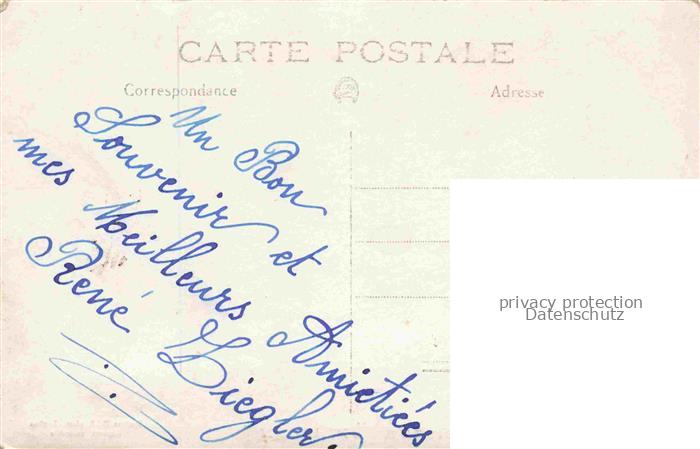 CARTE POSTALE
Correspondance
Adresse
Un Bon
Souvenir et
mes Meilleurs Amietiées
René Ziegler
privacy protection
Datenschutz